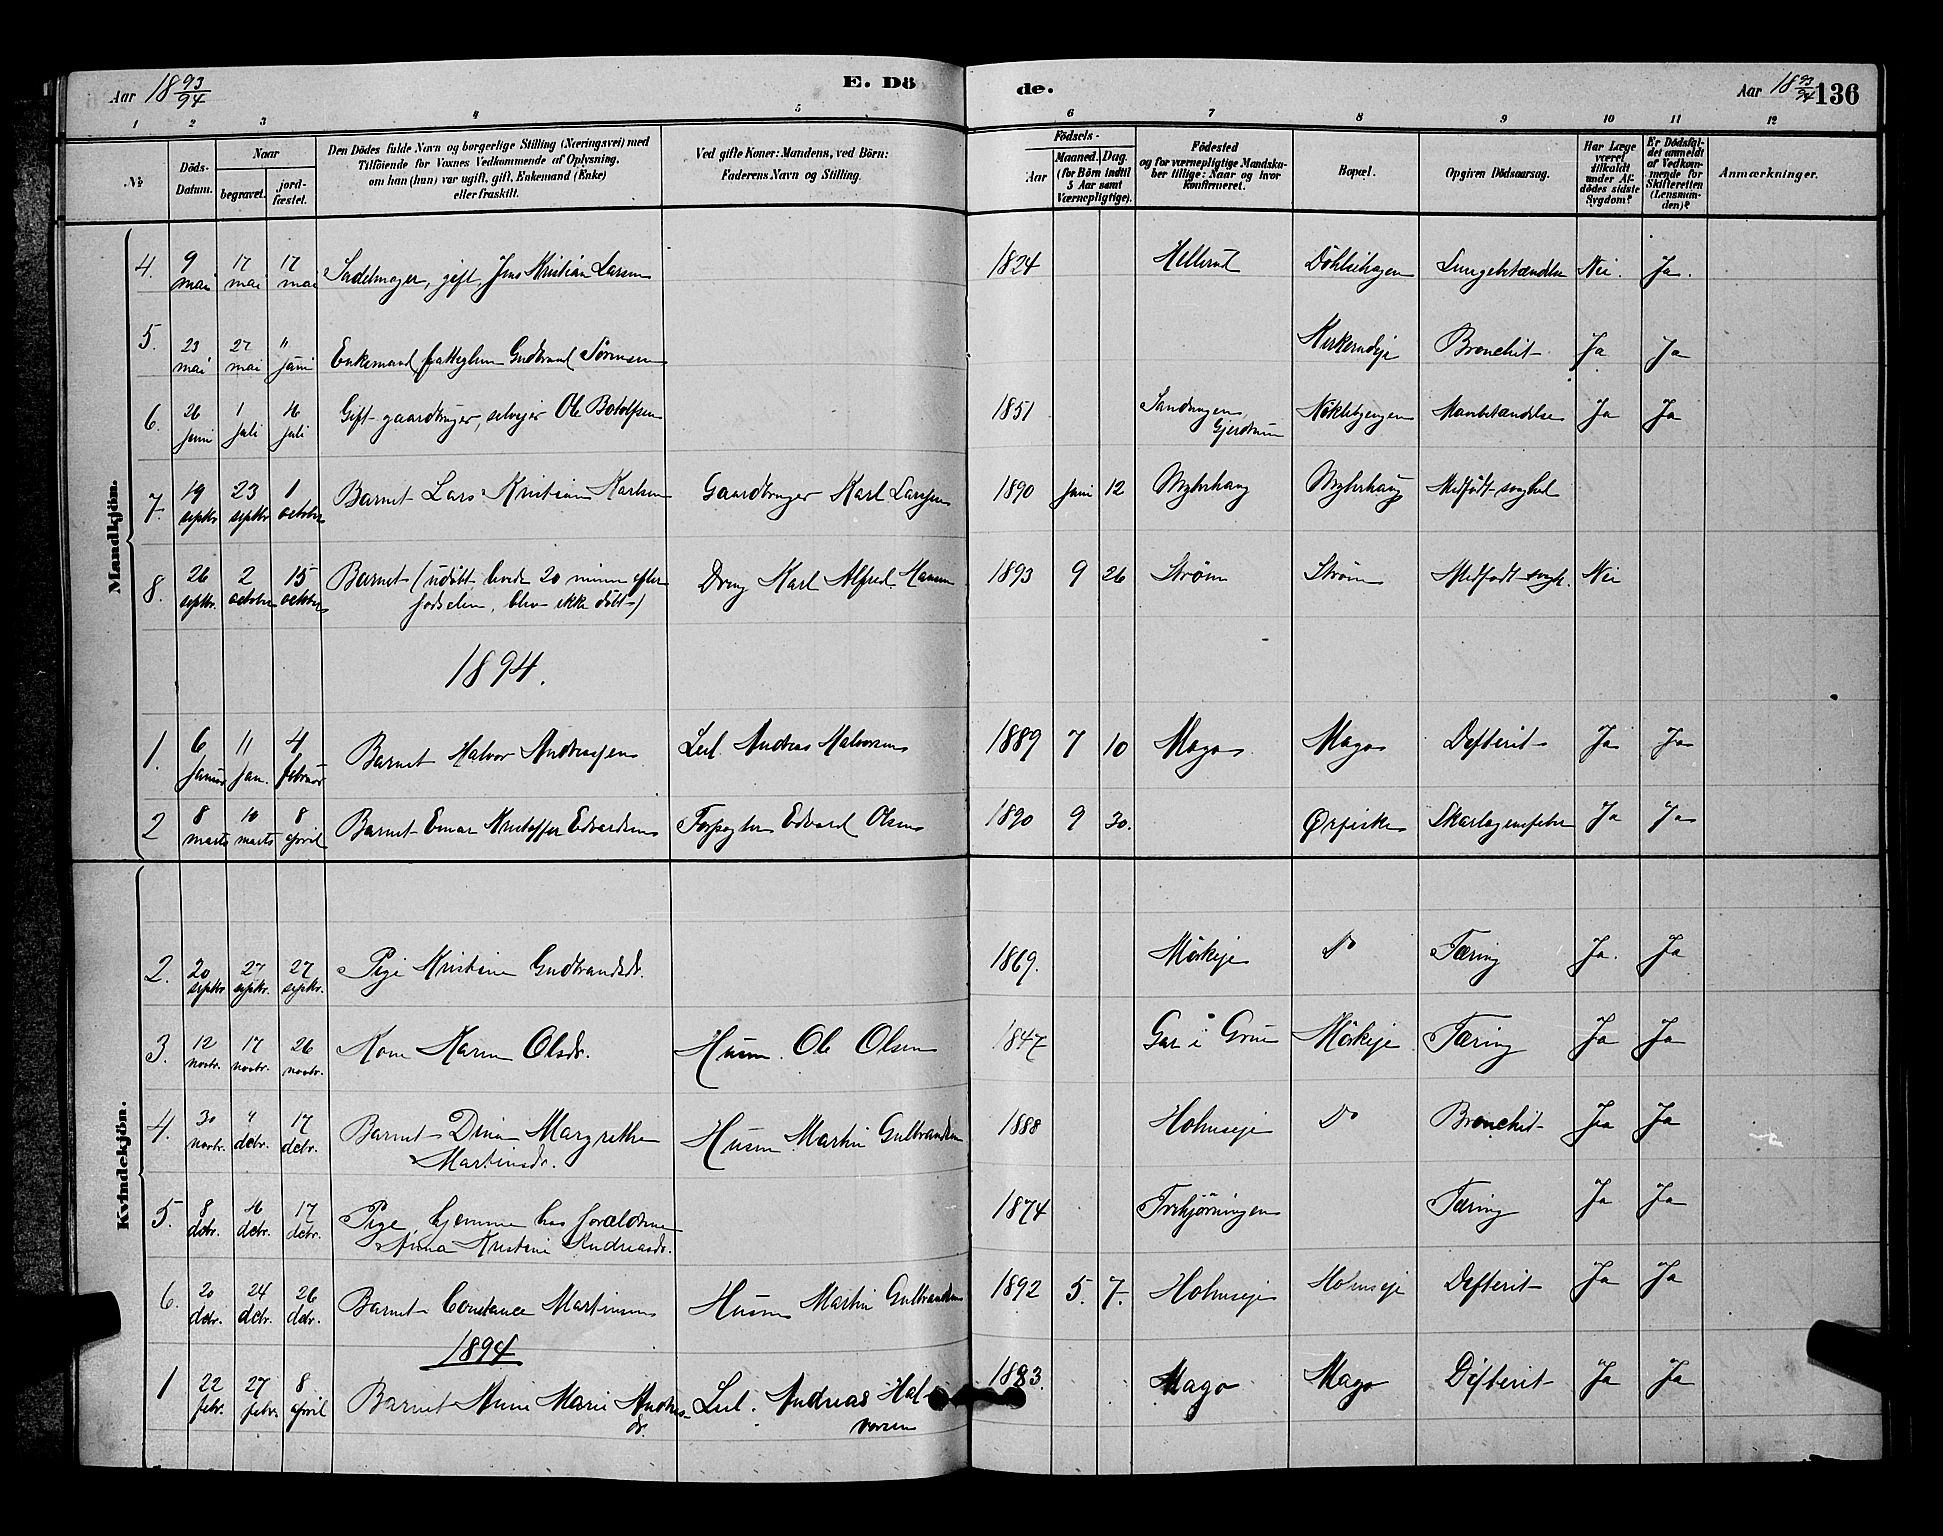 Aar 18 93/94
E. Dö
de.
Aar 18 93/94 136
1 2 3 4 5 6 7 8 9 10 11 12
No.
Döds-Datum.
Naar
begravet.
jord-fæstet.
Den Dödes fulde Navn og borgerlige Stilling (Næringsvei) med
Tilföiende for Voxnes Vedkommende af Oplysning,
om han (hun) var ugift, gift, Enkemand (Enke)
eller fraskilt.
Ved gifte Koner: Mandens, ved Börn:
Faderens Navn og Stilling.
Födsels-
Aar
Maaned. Dag.
(for Börn indtil
5 Aar samt
Værnepligtige).
Födested
og for værnepligtige Mandska-
ber tillige: Naar og hvor
Konfirmeret.
Bopæl.
Opgiven Dödsaarsag.
Har Læge
været
tilkaldt
under Af-
dödes sidste
Sygdom?
Er Dödsfal-
det anmeldt
af Vedkom-
mende for
Skifteretten
(Lensman-
den)?
Anmærkninger.
Mandkjön.
4. 9 mai 17 mai 17 mai Sadelmager, gift, Jens Kristian Larsen 1824 Hellerud Döhlihagen Lungebetændelse Nei. Ja.
5. 23 mai 27 mai " juni Enkemand fattiglem Gudbrand Sörensen Kirkerudeje Bronchit Ja Ja
6. 26 juni 1 juli 16 juli Gift gaardbruger, selvejer Ole Botolfsen 1851 Gjerdrum Mavebetændelse Ja Ja
7. 19 septbr 23 septbr 1 october Barnet Lars Kristian Karlsen Gaardbruger Karl Larssen 1890 juni 12 Myhrhaug Myhrhaug Medfödt svaghed
8. 26 septbr. 2 october 15 october Barnet (udöbt levede 20 minu efter
födselen, blev ikke döbt) Dreng Karl Alfred Hansen 1893 9 26 Ström Ström Medfödt svagh. Nei
1894.
1. 6 januar 11 jan. 4 februar Barnet Halvor Andreassen Leil. Andreas Halvorsen 1889 7 10 Mago Mago Difterit Ja Ja
2 8 marts 10 marts 8 april Barnet Einar Kristoffer Edvardsen Forpagter Edvard Olsen 1890 9 30. Ørfiske Skarlagensfeber Ja Ja
Kvindekjön.
2. 20 septbr 27 septbr. 27 septbr. Pige Kristine Gudbrandsdr. 1869. Mörkeje Do Tæring Ja. Ja
3. 12 novbr. 17 novbr. 26 novbr. Kone Karen Olsdr. Husm. Ole Olsen 1847 i Grue Mörkeje Tæring Ja Ja
4. 30 novbr. " decbr. 17 decbr. Barnet Dina Margrethe
Martinsdr. Husm Martin Gulbrandsen 1888 Holmseje Do Bronchit Ja Ja
5. 8 decbr. 16 decbr. 17 decbr. Pige, hjemme hos forældrene
Anna Kristine Andreasdr. 1874 Tæring Ja Ja
6. 20 decbr. 24 decbr. 26 decbr. Barnet Constance Martinsen Husm Martin Gulbrandsen 1892 5. 7. Holmseje Holmseje Difterit Ja Ja
1894
1 22 febr. 27 febr. 8 april Barnet Anne Marie Andreas-
dr. Leil. Andreas Hal-
vorsen 1883. Mago Mago Difterit Ja Ja